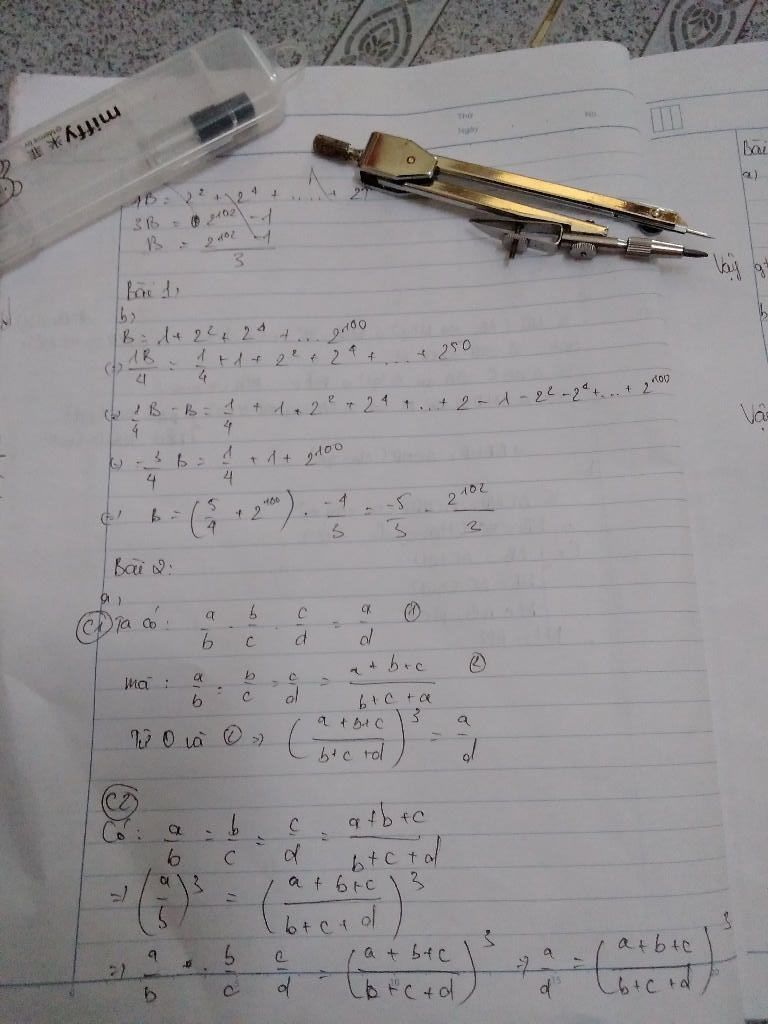 miffy
Thứ
Ngày
No.
4B = 2² + 2⁴ + .... + 2
3B = 2¹⁰² - 1
B = (2¹⁰² - 1)/3
Bài 1,
b,
B = 1 + 2² + 2⁴ + ... 2¹⁰⁰
(=) 1B/4 = 1/4 + 1 + 2² + 2⁴ + ... + 2⁹⁰
(=) 1/4 B - B = 1/4 + 1 + 2² + 2⁴ + ... + 2 - 1 - 2² - 2⁴ + ... + 2¹⁰⁰
(=) -3/4 B = 1/4 + 1 + 2¹⁰⁰
(=) B = (5/4 + 2¹⁰⁰) . -4/3 = -5/3 - 2¹⁰²/3
Bài 2:
a,
C1 Ta có: a/b . b/c . c/d = a/d ①
mà: a/b = b/c = c/d = (a + b + c)/(b + c + d) ②
Từ ① và ② => ((a + b + c)/(b + c + d))³ = a/d
C2
Có: a/b = b/c = c/d = (a + b + c)/(b + c + d)
=> (a/b)³ = ((a + b + c)/(b + c + d))³
=> a/b . b/c . c/d = ((a + b + c)/(b + c + d))³ => a/d = ((a + b + c)/(b + c + d))³
Bài
a)
Vậy
b
Vậ